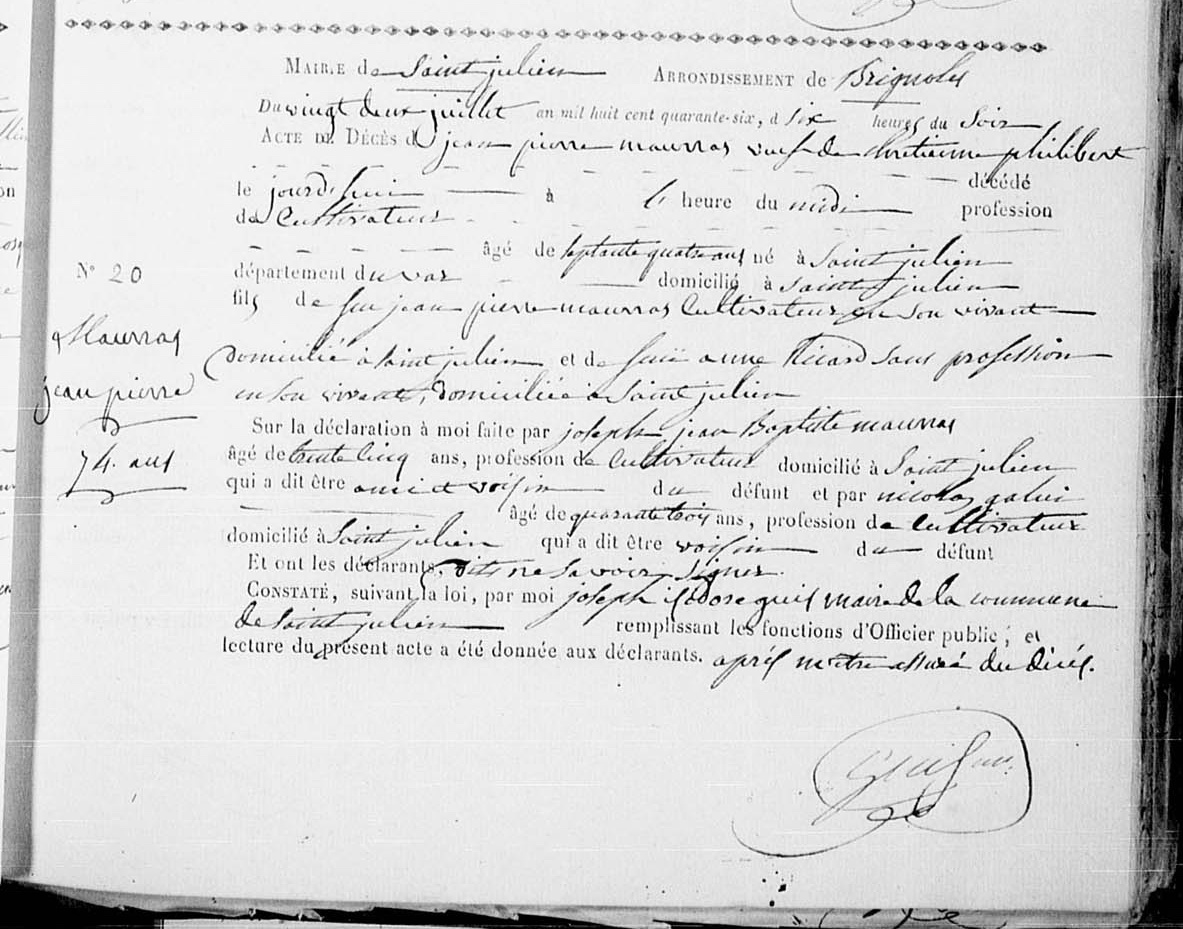 Mairie de Saint julien Arrondissement de Brignoles
Du vingt deux juillet an mil huit cent quarante-six, à six heures du soir
Acte de Décès de jean pierre maurras veuf de chretienne philibert
décédé
le jourd'hui à heure du midi profession
de Cultivateur
âgé de septante quatre ans né à Saint julien
département du var domicilié à Saint julien
fils de feu jean pierre maurras Cultivateur en son vivant
domicilié à Saint julien et de feue anne Ricard sans profession
en son vivant, domiciliée à Saint julien
Sur la déclaration à moi faite par joseph jean Baptiste maurras
âgé de trente cinq ans, profession de Cultivateur domicilié à Saint julien
qui a dit être ami et voisin du défunt et par nicolas
âgé de quarante trois ans, profession de Cultivateur
domicilié à Saint julien qui a dit être voisin du défunt
Et ont les déclarants, dit ne savoir signer.
Constaté, suivant la loi, par moi joseph isidore guis maire de la commune
de Saint julien remplissant les fonctions d'Officier public, et
lecture du présent acte a été donnée aux déclarants. après m'être assuré du décés.
N° 20
Maurras
jean pierre
74. ans
Guis